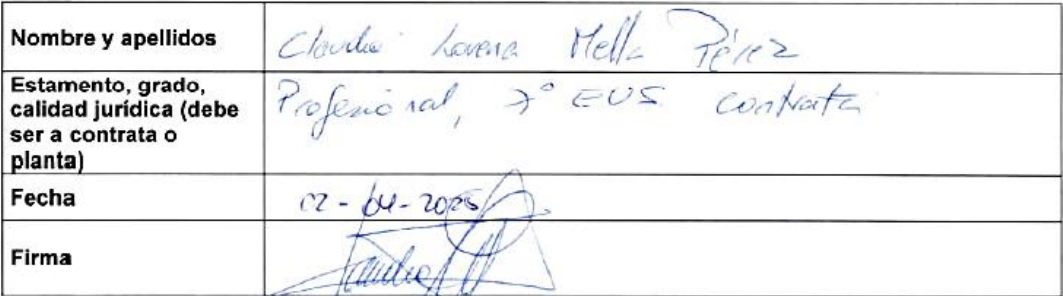 Nombre y apellidos Claudia Lorena Mella Pérez
Estamento, grado,
calidad jurídica (debe
ser a contrata o
planta) Profesional, 7° EUS contrata
Fecha 02-04-2025
Firma